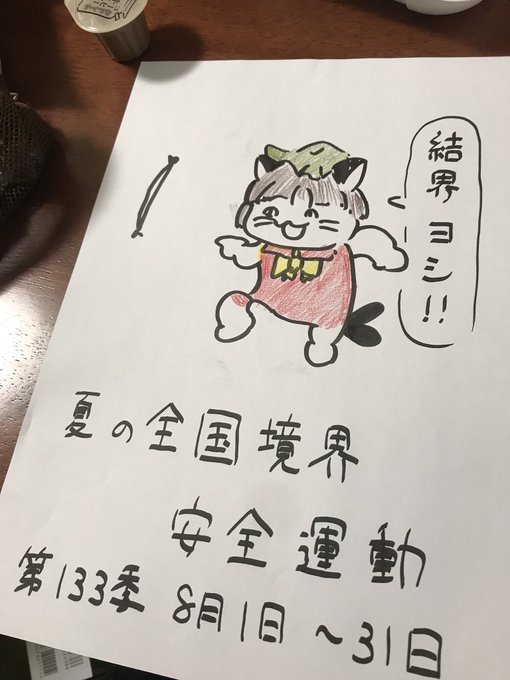 結界 ヨシ!!
夏の全国境界
安全運動
第133季 8月1日 ~31日